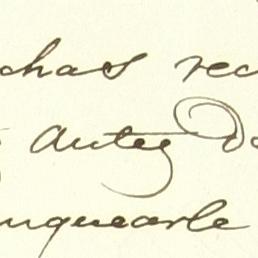 chas rec
antes de
nquearle